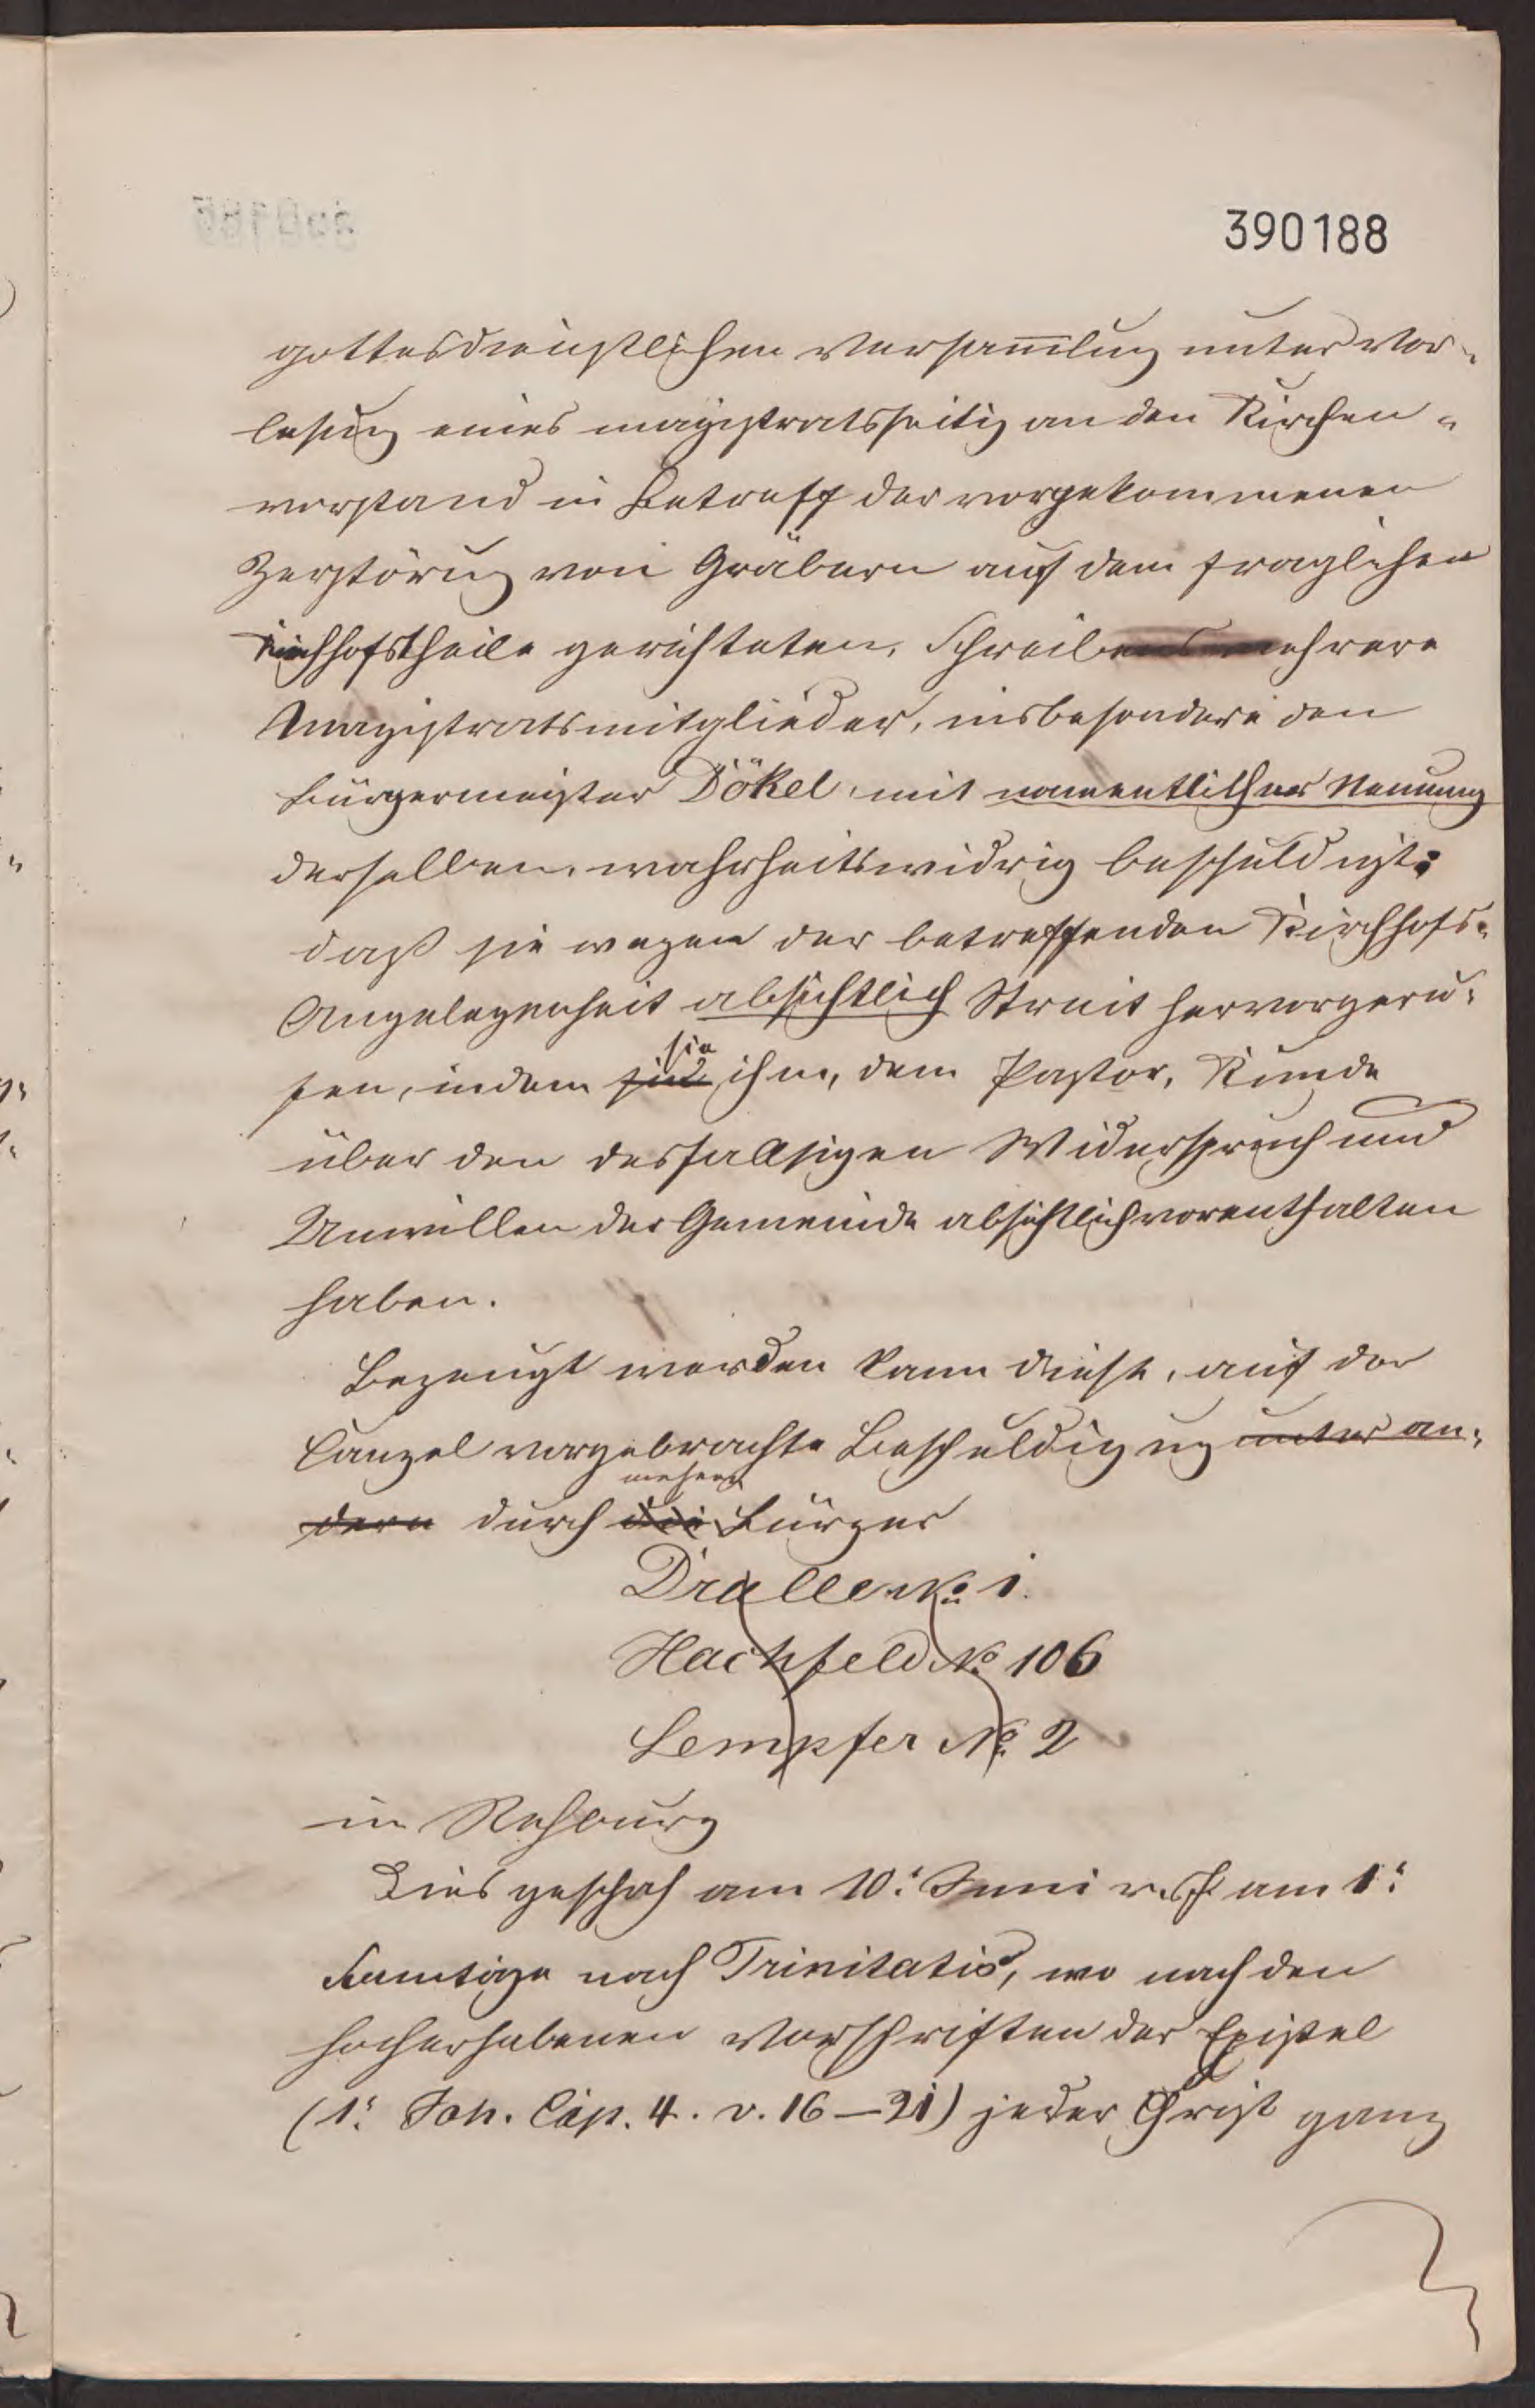 390188
gottesdienstlichen Versam̅lung unter Vor-
lesung eines magistratsseitig an den Kirchen-
vorstand in Betreff der vorgekommenen
Zerstörung von Gräbern auf dem fraglichen
Kirchhofstheile gerichteten, Schreibens mehrere
Magistratsmitglieder, insbesondere den
Bürgermeister Dökel, mit namentlicher Nennung
derselben, wahrheitswidrig beschuldigt:
daß sie wegen der betreffenden Kirchhofs-
Angelegenheit absichtlich Streit hervorgeru-
fen, indem sie ihm, dem Pastor, Kunde
über den desfallsigen Widerspruch und
Unwillen der Gemeinde absichtlich vorenthalten
haben.
Bezeugt werden kann diese, auf der
Canzel vorgebrachte Beschuldigung unter an-
dern durch die mehrere Bürger
Draller No 1.
Hachfeld No 106
Lempfer No 2
in Rehburg
Dies geschah am 10. Juni resp. am 1.
Sonntage nach Trinitatis, wo nach den
hocherhabenen Vorschriften der Epistel
(1. Joh. Cap. 4. v. 16–21) jeder Christ ganz